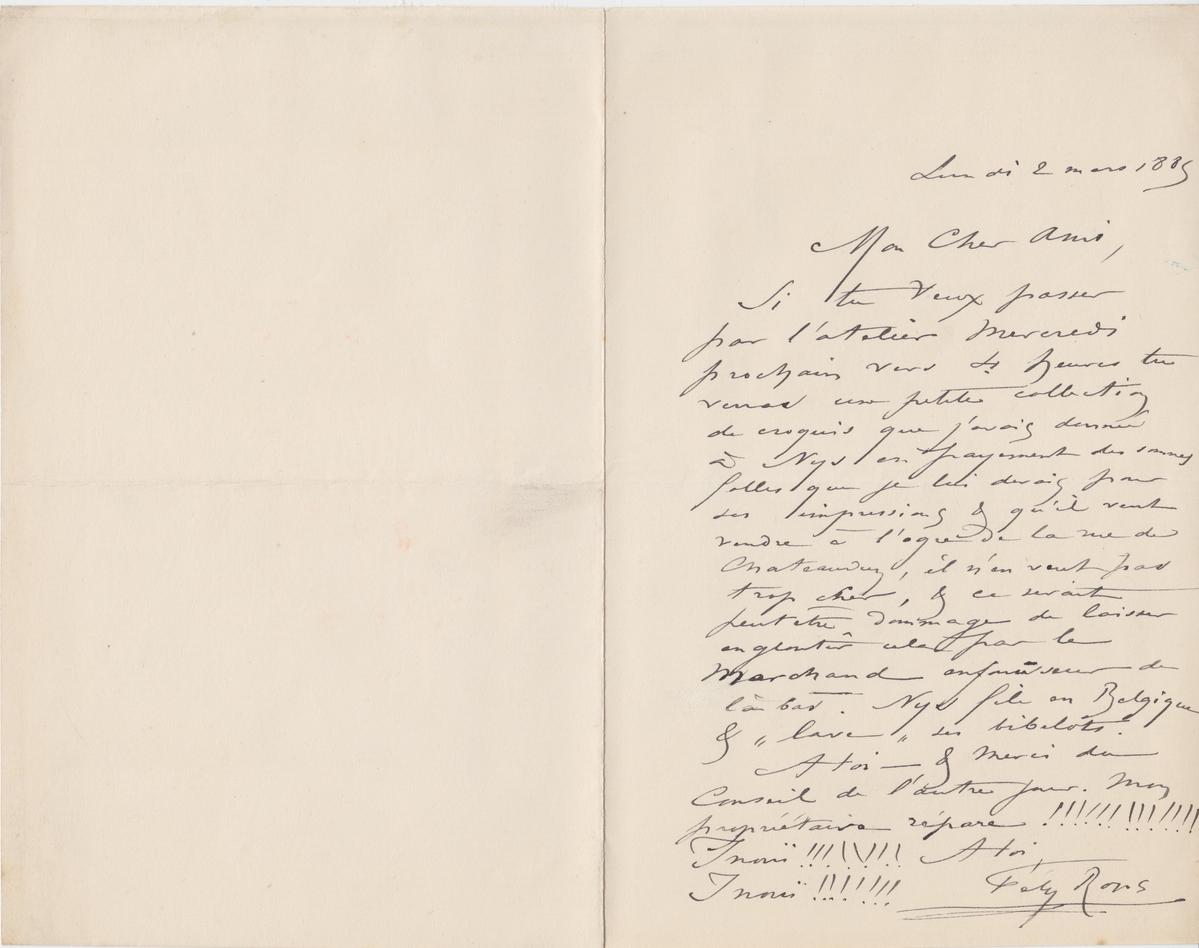 Lundi 2 mars 1885
Mon Cher Ami,
Si tu veux passer
par l'atelier Mercredi
prochain vers 4 heures tu
verras une petite collection
de croquis que j'avais donnée
à Nys en payement des sommes
folles que je lui devais pour
ses impressions & qu'il veut
vendre à l'ogre de la rue de
Chateaudun, il n'en veut pas
trop cher, & ce serait
peutetre dommage de laisser
engloutir cela par le
Marchand enfouisseur de
là bas. Nys file en Belgique
& „ lave „ ses bibelots.
A toi — & merci du
Conseil de l'autre jour. Mon
propriétaire répare !!!!!!!!!!!!!
Inouï !!!!!!!! A toi,
Inouï !!!!!!! Fély Rops